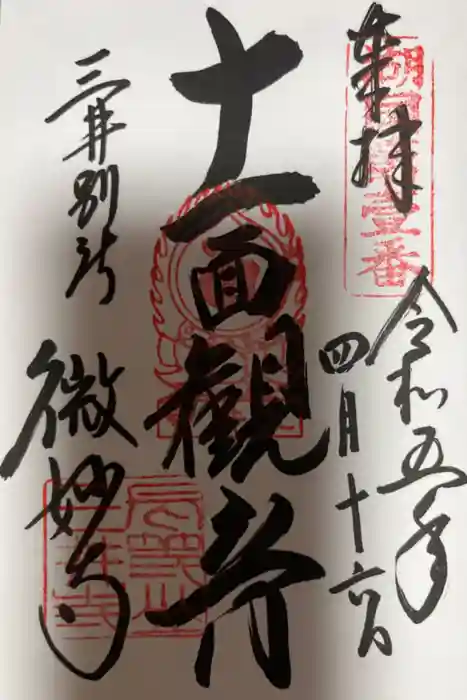 奉拝
令和五年
四月十六日
十一面觀音
三井別所
微妙寺